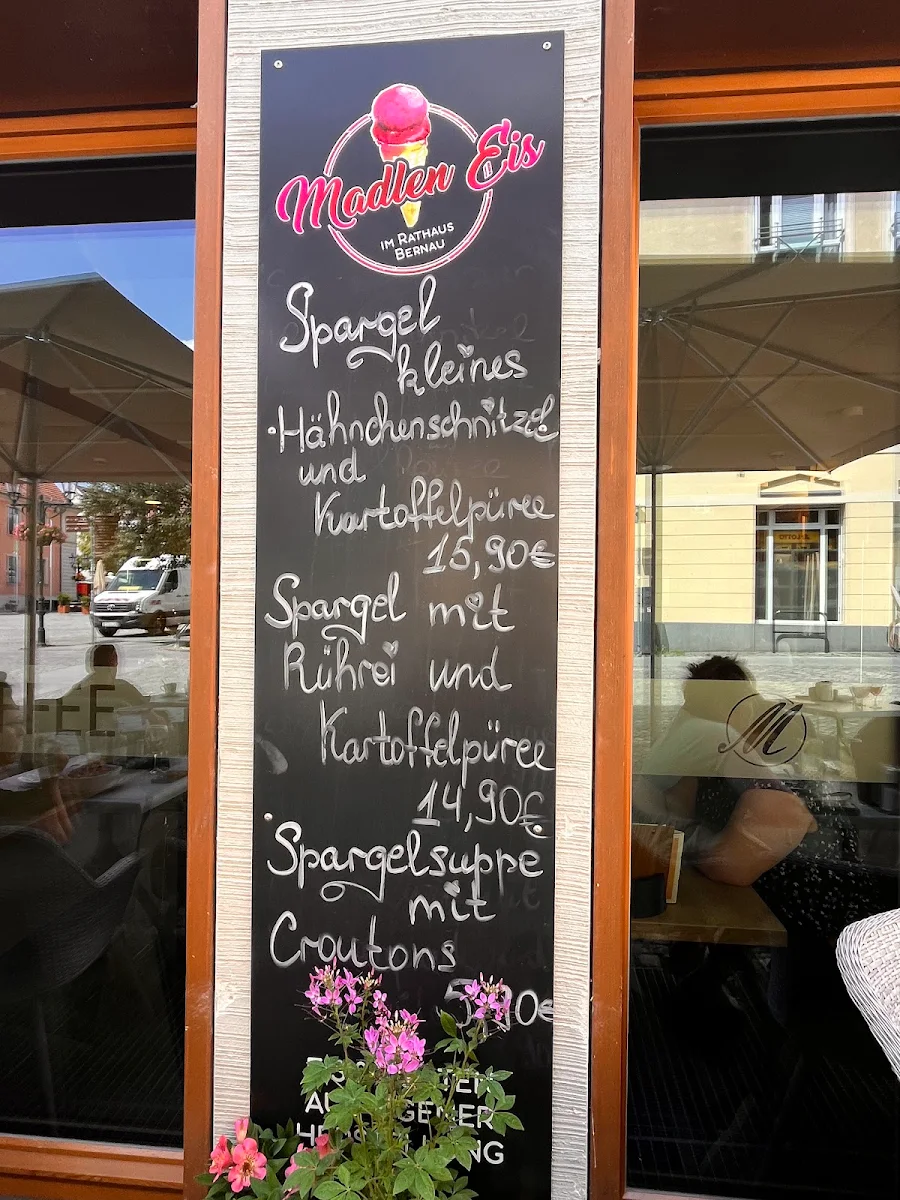 Madlen Eis
IM RATHAUS
BERNAU
Spargel
kleines
Hähnchenschnitzel
und
Kartoffelpüree
15,90€
Spargel mit
Rührei und
Kartoffelpüree
14,90€
Spargelsuppe
mit
Croutons
M